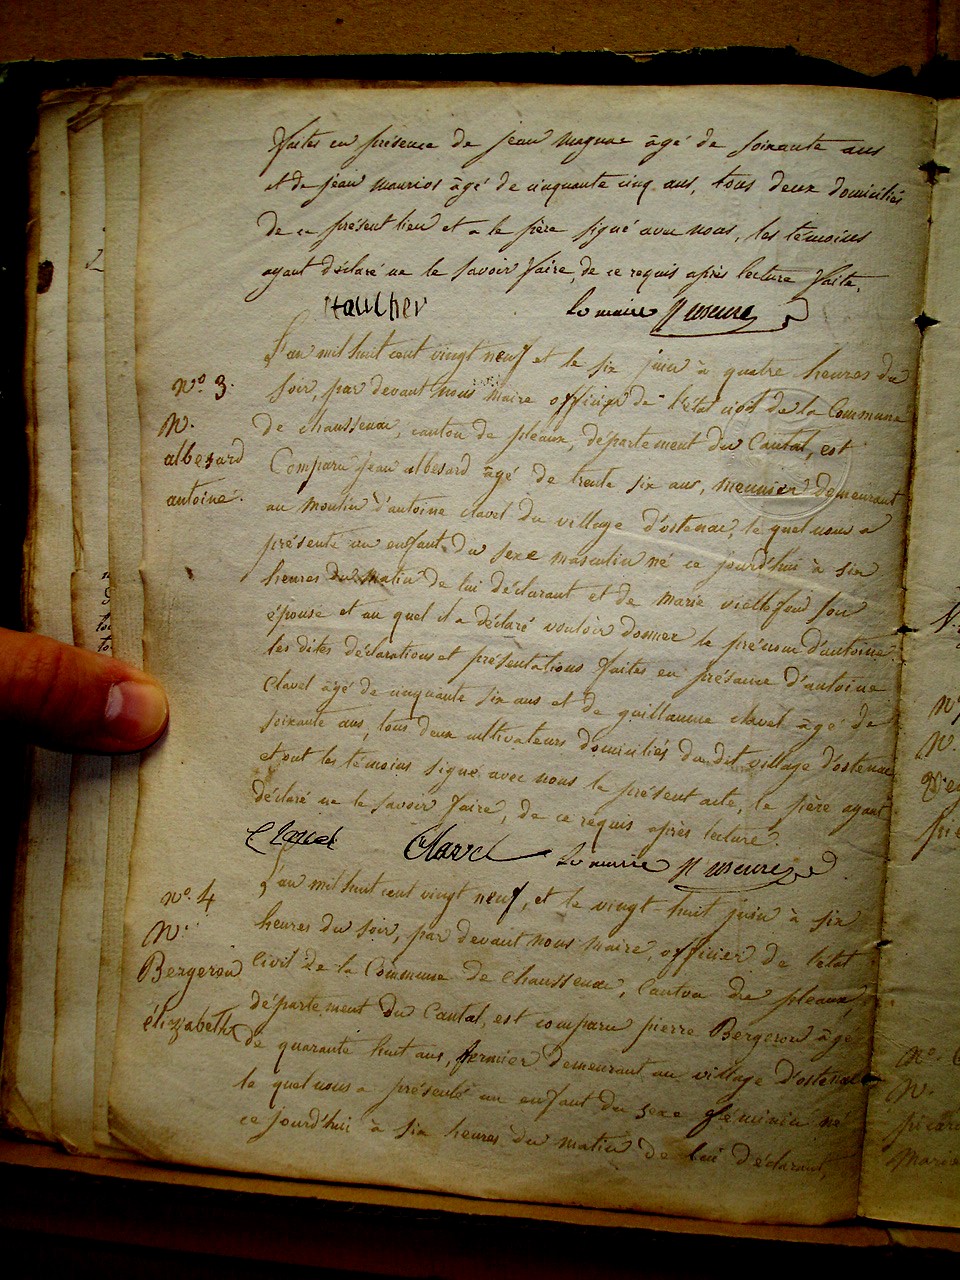 faites en présence de jean magnac âgé de soixante ans
et de jean maurios âgé de cinquante cinq ans, tous deux domiciliés
de ce présent lieu et a le père signé avec nous, les témoins
ayant déclaré ne le savoir faire, de ce requis après lecture faite.
Le maire
L'an mil huit cent vingt neuf et le six juin à quatre heures du
nº 3.
soir, par devant nous maire officier de l'état civil de la Commune
N.
de chaussenac, canton de pleaux, département du Cantal, est
albesard
Comparu jean albesard âgé de trente six ans, meunier demeurant
antoine.
au moulin d'antoine clavel du village d'ostenac, le quel nous a
présenté un enfant du sexe masculin né ce jourd'hui à six
heures du matin de lui déclarant et de marie viellefond son
épouse et au quel il a déclaré vouloir donner le prénom d'antoine.
les dites déclarations et présentations faites en présance d'antoine
clavel âgé de cinquante six ans et de guillaume clavel âgé de
soixante ans, tous deux cultivateurs domiciliés du dit village d'ostenac
et ont les témoins signé avec nous le présent acte, le père ayant
déclaré ne le savoir faire, de ce requis après lecture.
Clavel Clavel Le maire
L'an mil huit cent vingt neuf, et le vingt-huit juin à six
nº. 4
heures du soir, par devant nous maire, officier de l'état
N.
civil de la Commune de chaussenac, Canton de pleaux,
Bergeron
département du Cantal, est comparu pierre Bergeron âgé
élizabeth
de quarante huit ans, fermier demeurant au village d'ostenac
le quel nous a présenté un enfant du sexe féminin né
ce jourd'hui à six heures du matin de lui déclarant,